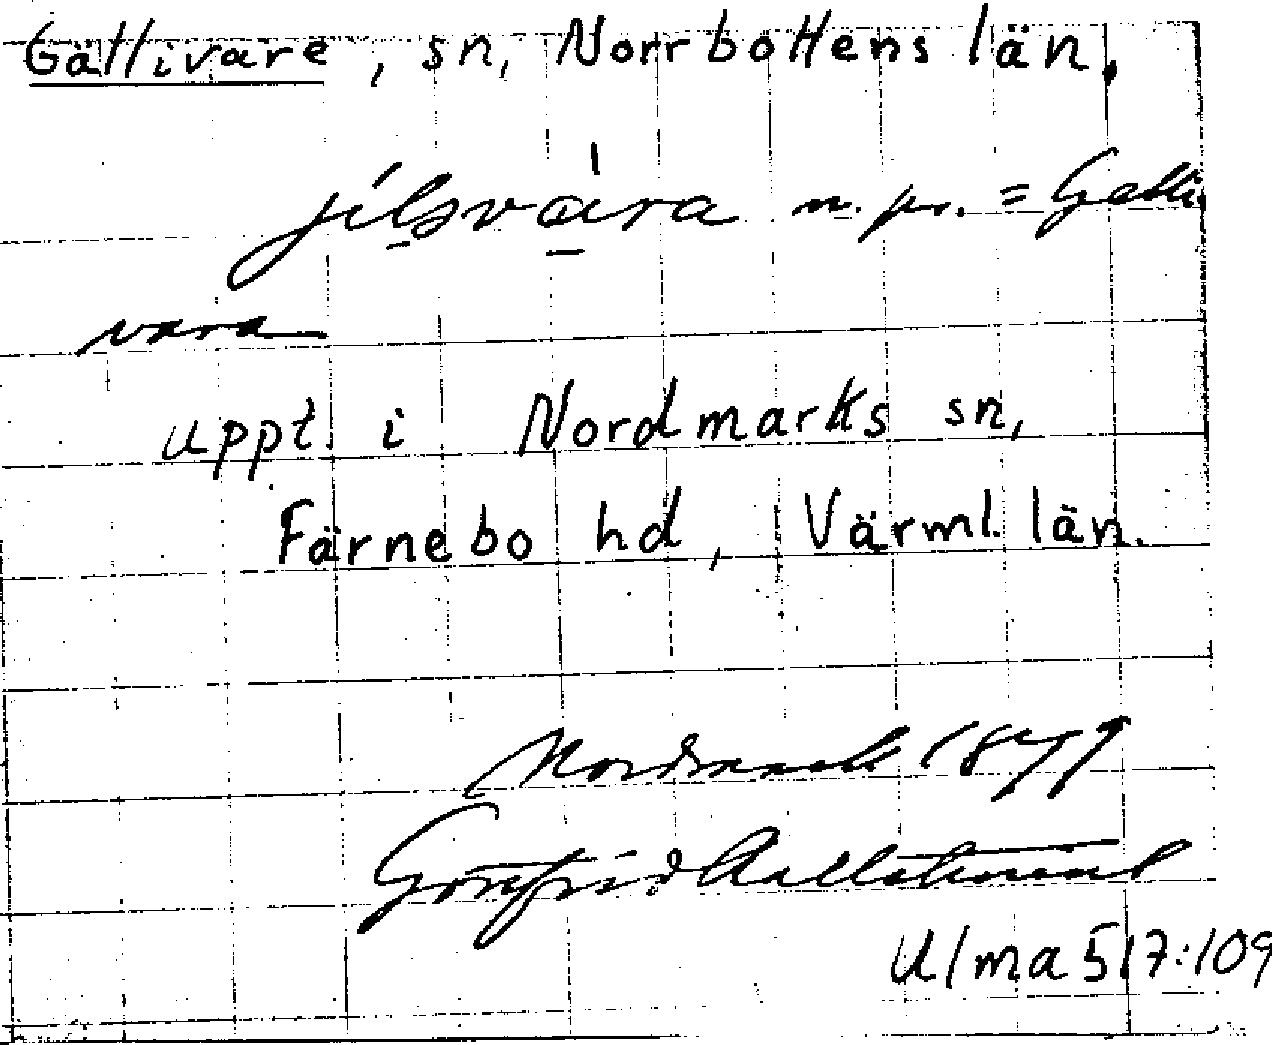 Gällivare, sn, Norrbottens län.
jílsvára n. pr. = Gelli
vara
uppt. i Nordmarks sn,
Färnebo hd, Värml. län.
Nordmark 1879
Gottfrid Kallstenius
Ulma 517:109